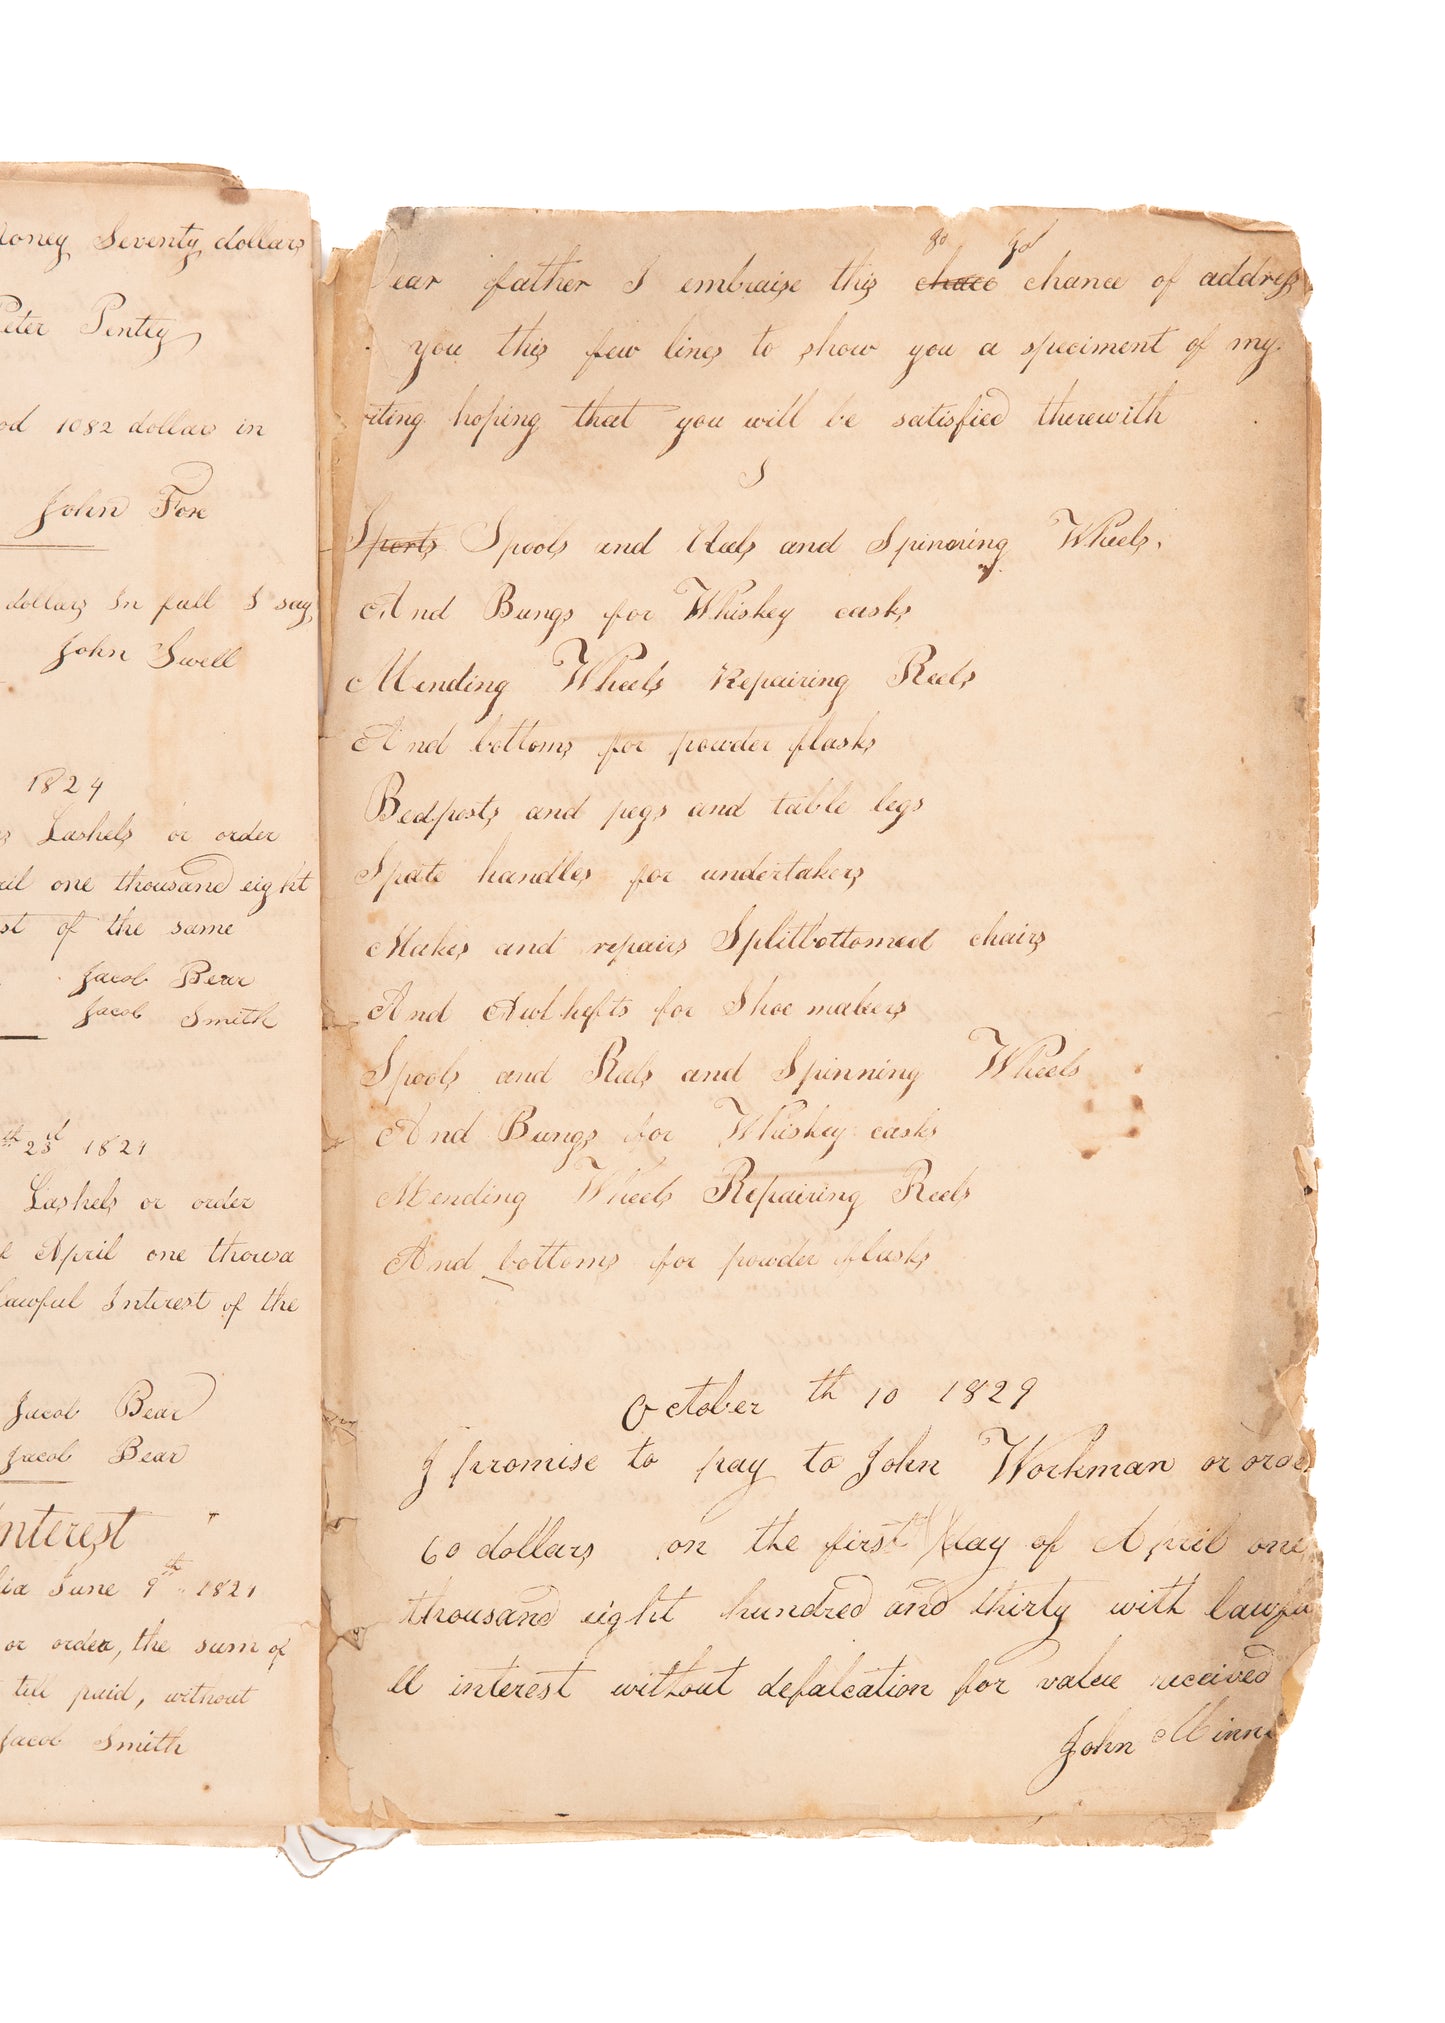 Money Seventy dollars
Peter Pentey
1082 dollars in
John Fore
dollars In full I say
John Swell
1824
Lashels or order
one thousand eight
of the same
Jacob Bear
Jacob Smith
th 23d 1821
Lashels or order
April one thousa
lawful Interest of the
Jacob Bear
Jacob Bear
Interest
June 9th 1821
or order, the sum of
till paid, without
Jacob Smith
Dear father I embraise this chace chance of address
you this few lines to show you a speciment of my
riting hoping that you will be satisfied therewith
S
Sports Spools and Reels and Spinning Wheels,
And Bungs for Whiskey casks
Mending Wheels Repairing Reels
And bottoms for powder flasks
Bedposts and pegs and table legs
Spate handles for undertakers
Makes and repairs Splitbottomed chairs
And Awl hefts for Shoe makers
Spools and Reels and Spinning Wheels
And Bungs for Whiskey casks
Mending Wheels Repairing Reels
And bottoms for powder flasks
October th 10 1829
I promise to pay to John Workman or orde
60 dollars on the first day of April one
thousand eight hundred and thirty with lawfu
ll interest without defalcation for value received
John Minn